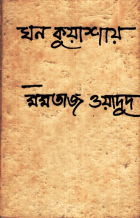 ঘন কুয়াশায়
মমতাজ ওয়াদুদ